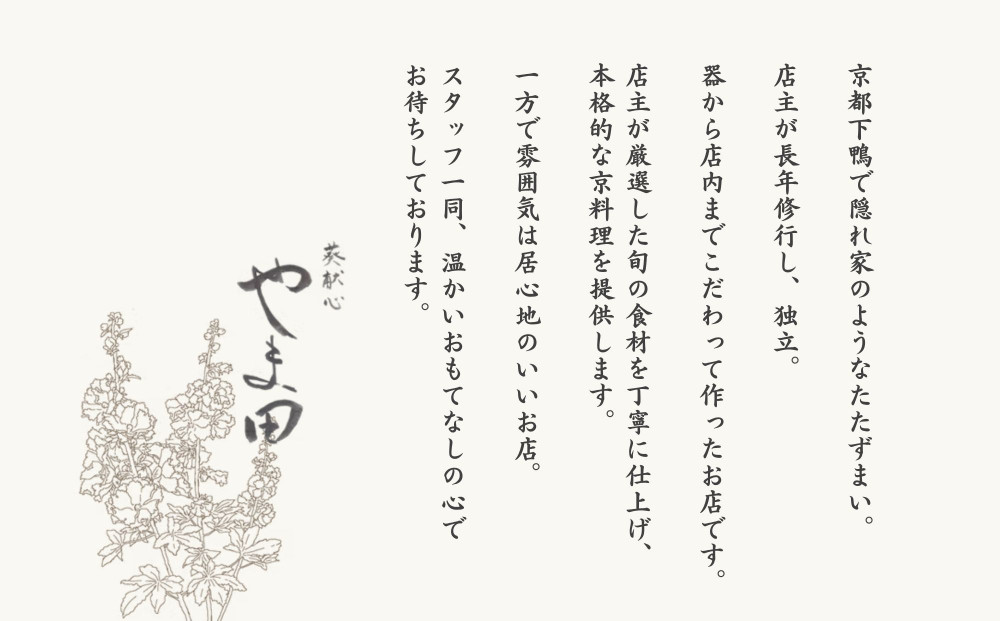 京都下鴨で隠れ家のようなたたずまい。
店主が長年修行し、独立。
器から店内までこだわって作ったお店です。
店主が厳選した旬の食材を丁寧に仕上げ、
本格的な京料理を提供します。
一方で雰囲気は居心地のいいお店。
スタッフ一同、温かいおもてなしの心で
お待ちしております。
葵献心
やま田